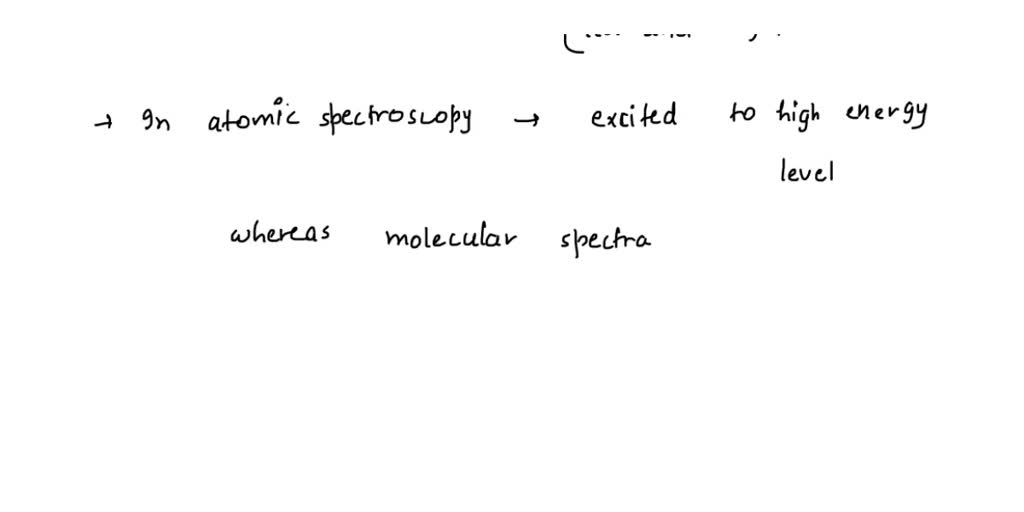 → In atomic spectroscopy → excited to high energy
level
whereas molecular spectra